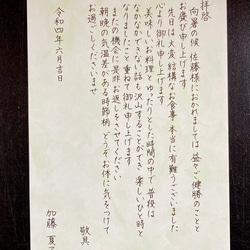 拝啓
向暑の候 佐藤様におかれましては益々ご健勝のことと
お慶び申し上げます
度日は大変結構なお食事 本当に有難うございました
心より御礼申し上げます
美味しいお料理とゆったりとした時間の中で普段は
なかなかできない話も沢山することができ 楽しいひと時と
なりましたこと重ねて御礼申し上げます
またの機会に是非お返しをさせてください
朝晩の気温差がある時節柄 どうぞお体に気をつけて
お過ごしくださいませ
敬具
令和四年六月吉日
加藤 夏